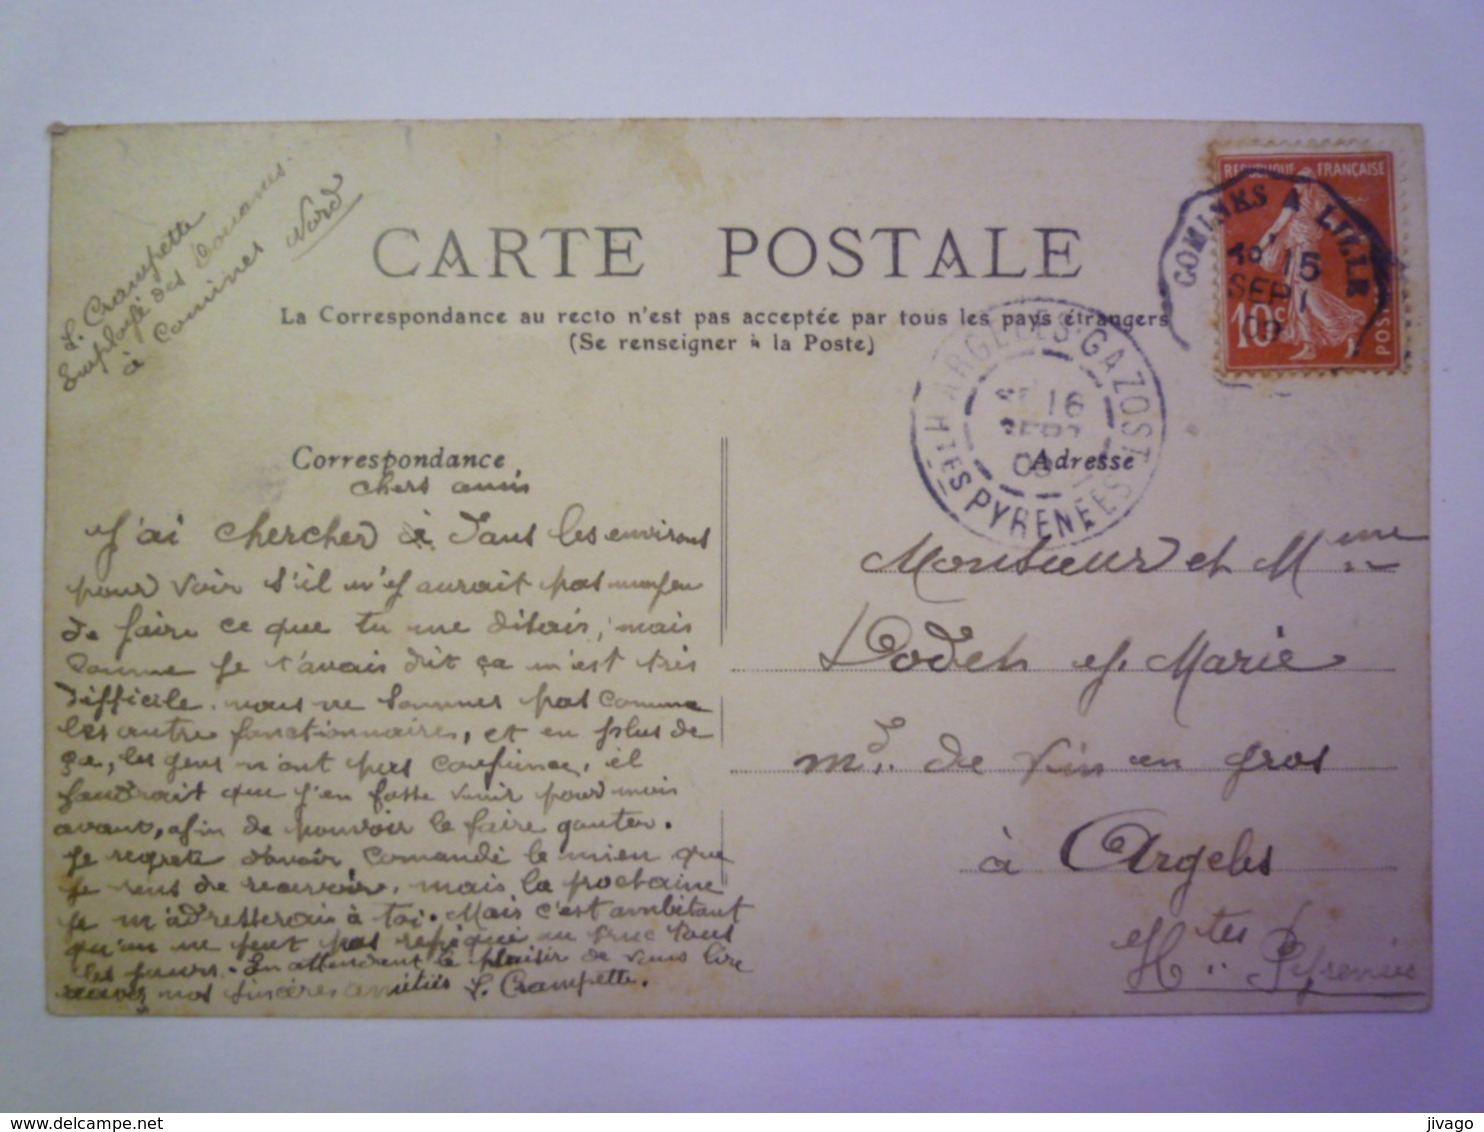 L. Crampette
Employé des Douanes
à Comines Nord
CARTE POSTALE
La Correspondance au recto n'est pas acceptée par tous les pays étrangers
(Se renseigner à la Poste)
REPUBLIQUE FRANÇAISE
10 c
POSTES
COMINES A LILLE
15
SEPT
09
ARGELÈS-GAZOST
16
SEPT
09
HTES PYRENEES
Correspondance
Adresse
chers amis
J'ai chercher à dans les environs
pour voir s'il n'y aurait pas moyen
de faire ce que tu me disais, mais
comme je t'avais dit ça m'est très
difficile. nous ne sommes pas comme
les autre fonctionnaires, et en plus de
ça, les gens n'ont pas confiance, il
faudrait que j'en fasse venir pour moi
avant, afin de pouvoir le faire gouter.
Je regrete d'avoir comandé le mien que
je viens de recevoir, mais la prochaine
je m'adresserais à toi. Mais c'est embêtant
qu'on ne peut pas au truc tous
les jours. En attendent le plaisir de vous lire
recevez nos sincères amitiés L. Crampette.
Monsieur et Mme
Dodeh J. Marie
md. de Vin en gros
à Argeles
Htes Pyrénées
www.delcampe.net
jivago